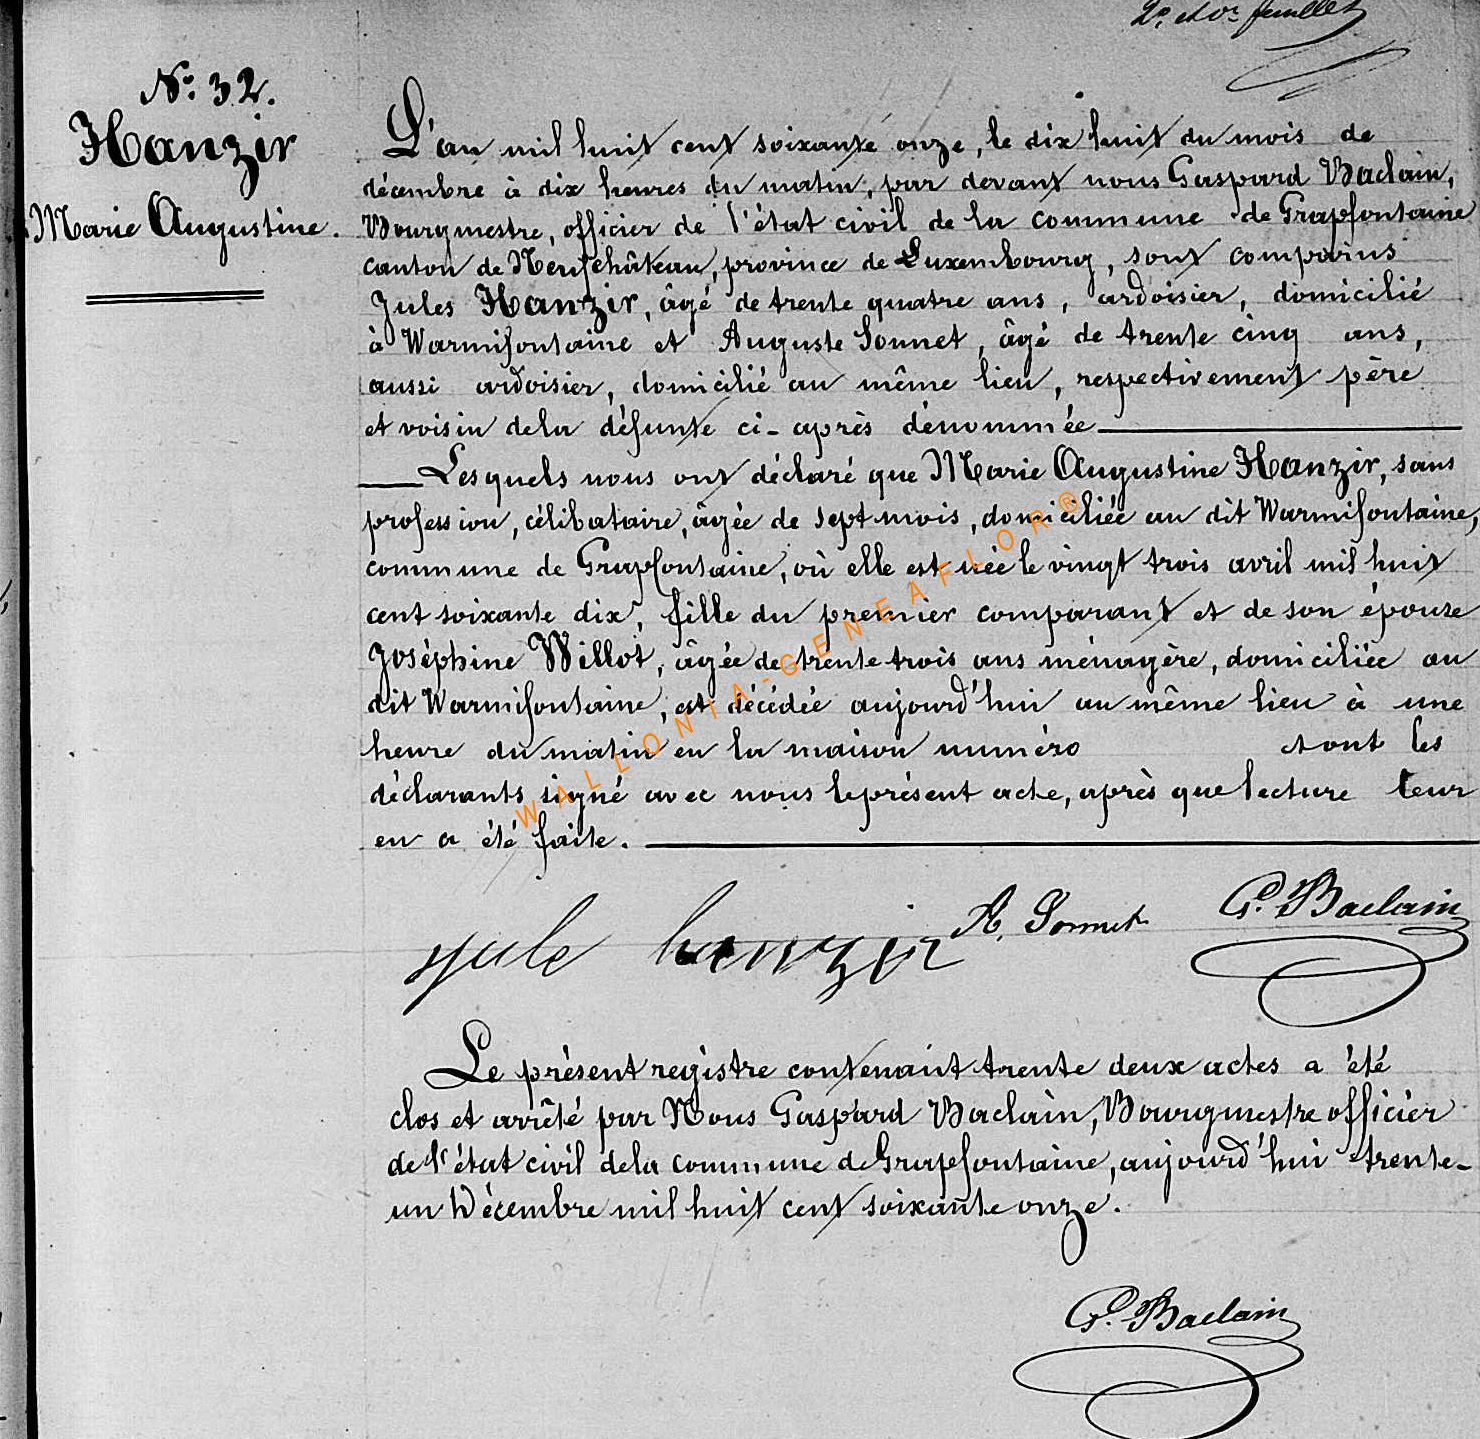 2e et Dr feuillet
N° 32.
Hanzir
Marie Augustine.
L'an mil huit cent soixante onze, le dix huit du mois de
décembre à dix heures du matin, par devant nous Gaspard Baclain,
Bourgmestre, officier de l'état civil de la commune de Grapfontaine
canton de Neufchâteau, province de Luxembourg, sont comparus
Jules Hanzir, âgé de trente quatre ans, ardoisier, domicilié
à Warmifontaine et Auguste Sonnet, âgé de trente cinq ans,
aussi ardoisier, domicilié au même lieu, respectivement père
et voisin de la défunte ci-après dénommée
Lesquels nous ont déclaré que Marie Augustine Hanzir, sans
profession, célibataire, âgée de sept mois, domiciliée au dit Warmifontaine,
commune de Grapfontaine, où elle est née le vingt trois avril mil huit
cent soixante dix, fille du premier comparant et de son épouse
Joséphine Willot, âgée de trente trois ans ménagère, domiciliée au
dit Warmifontaine, est décédée aujourd'hui au même lieu à une
heure du matin en la maison numéro et ont les
déclarants signé avec nous le présent acte, après que lecture leur
en a été faite.
WALLONIA-GENEAFLOR®
jule hanzir A. Sonnet G. Baclain
Le présent registre contenant trente deux actes a été
clos et arrêté par Nous Gaspard Baclain, Bourgmestre officier
de l'état civil de la commune de Grapfontaine, aujourd'hui trente-
un Décembre mil huit cent soixante onze.
G. Baclain